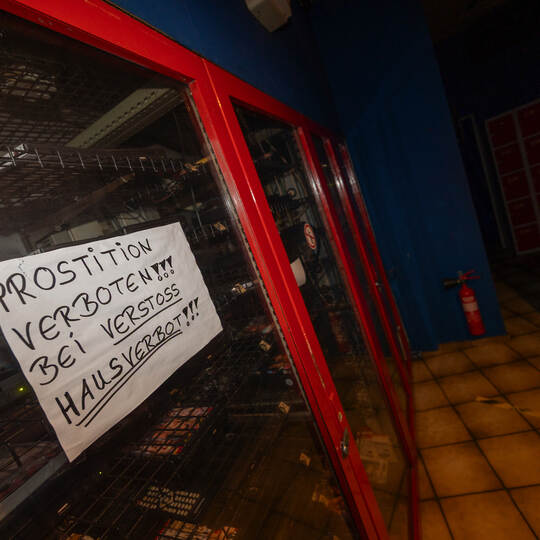 PROSTITION
VERBOTEN!!!
BEI VERSTOSS
HAUSVERBOT!!!